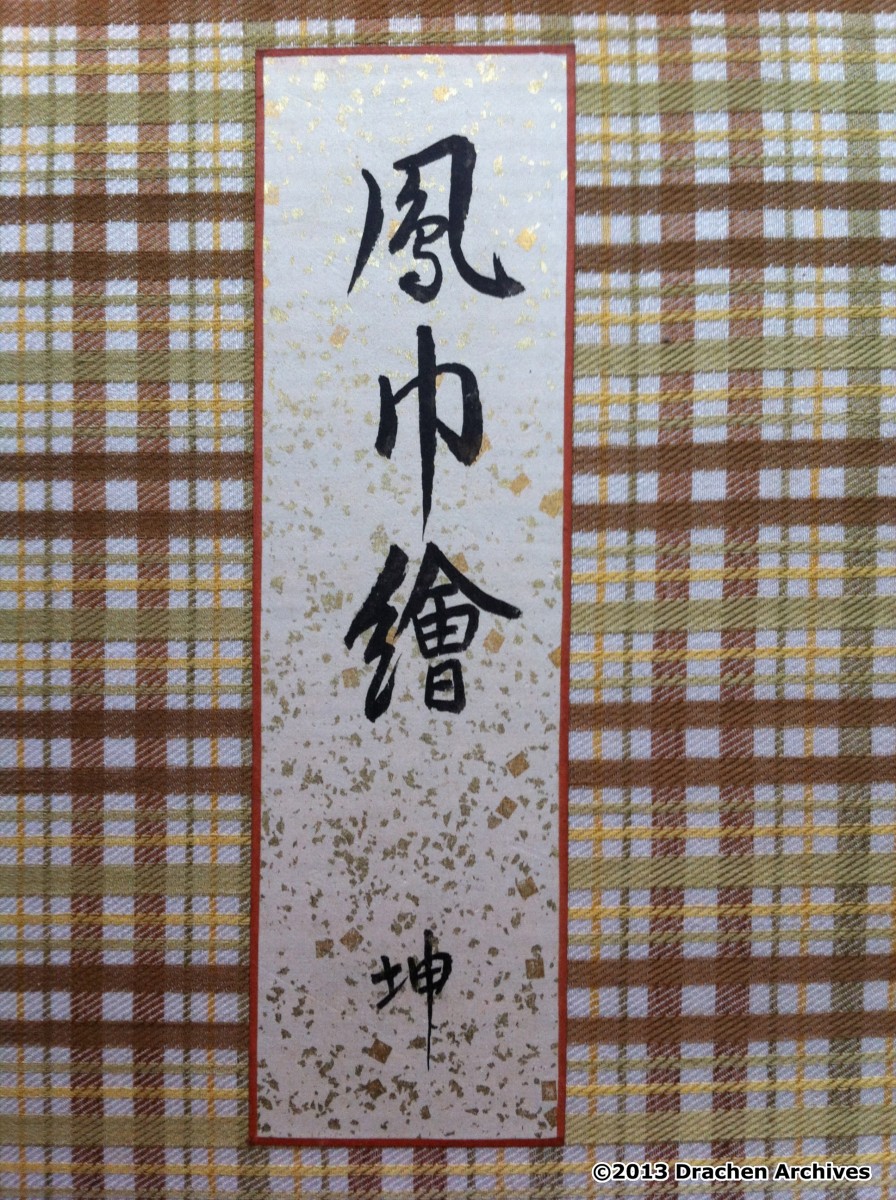 鳳巾繪
坤
©2013 Drachen Archives